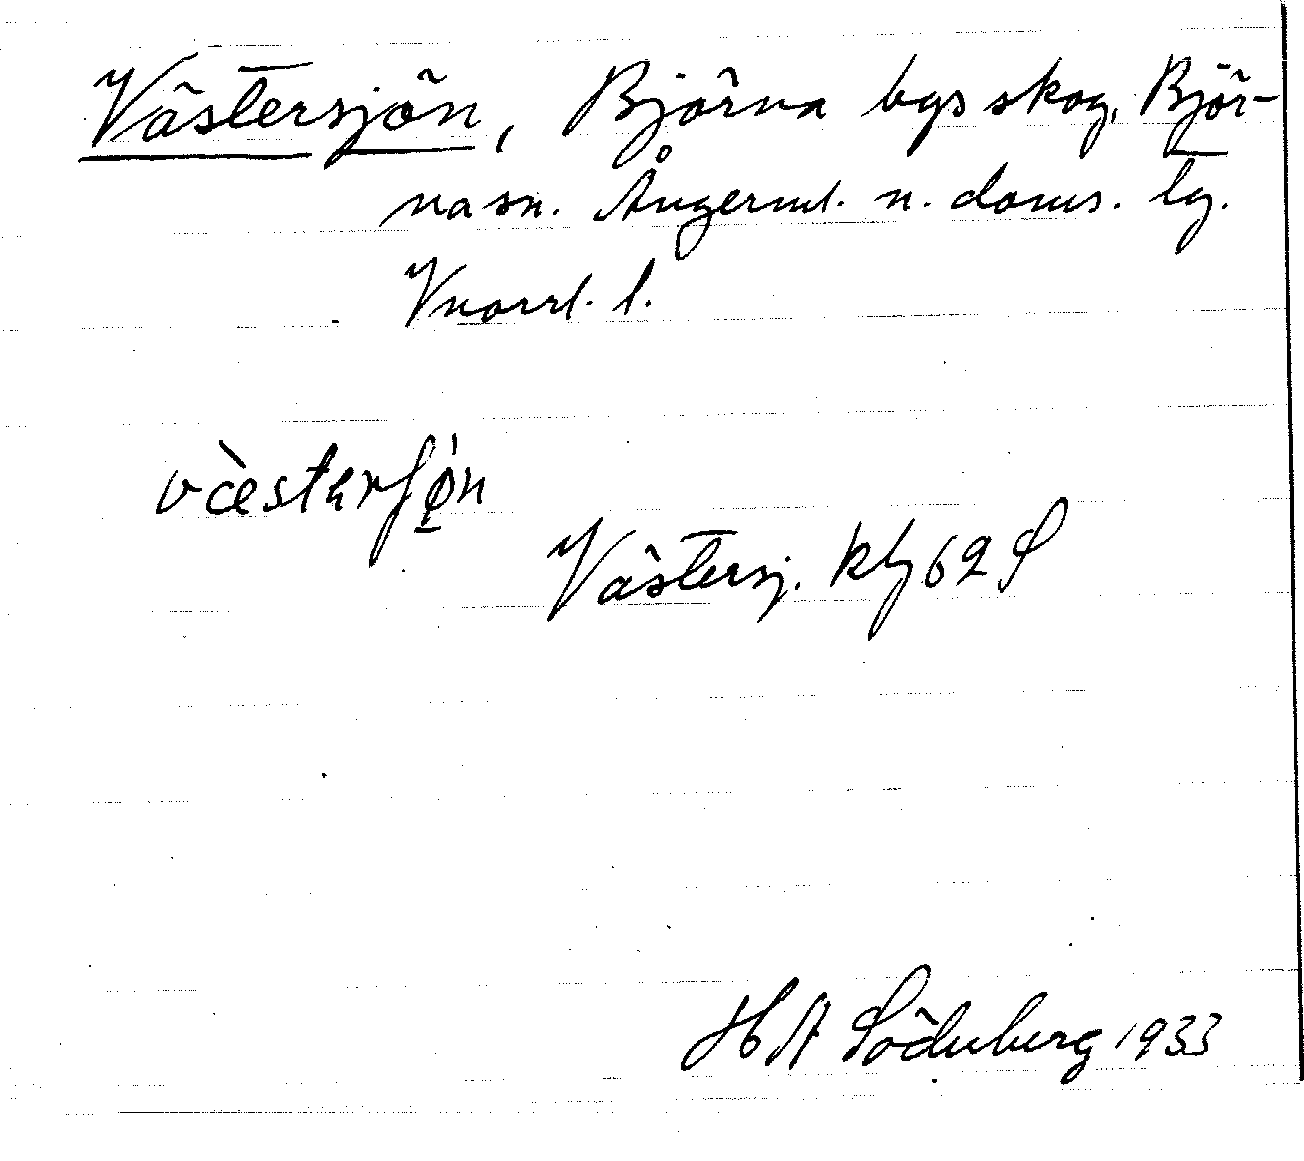 Västersjön, Björna bys skog, Björ-
na sn. Ångerml. n. doms. lg.
Vnorrl. l.
Västersj. kb 62 S
H A Söderberg 1933